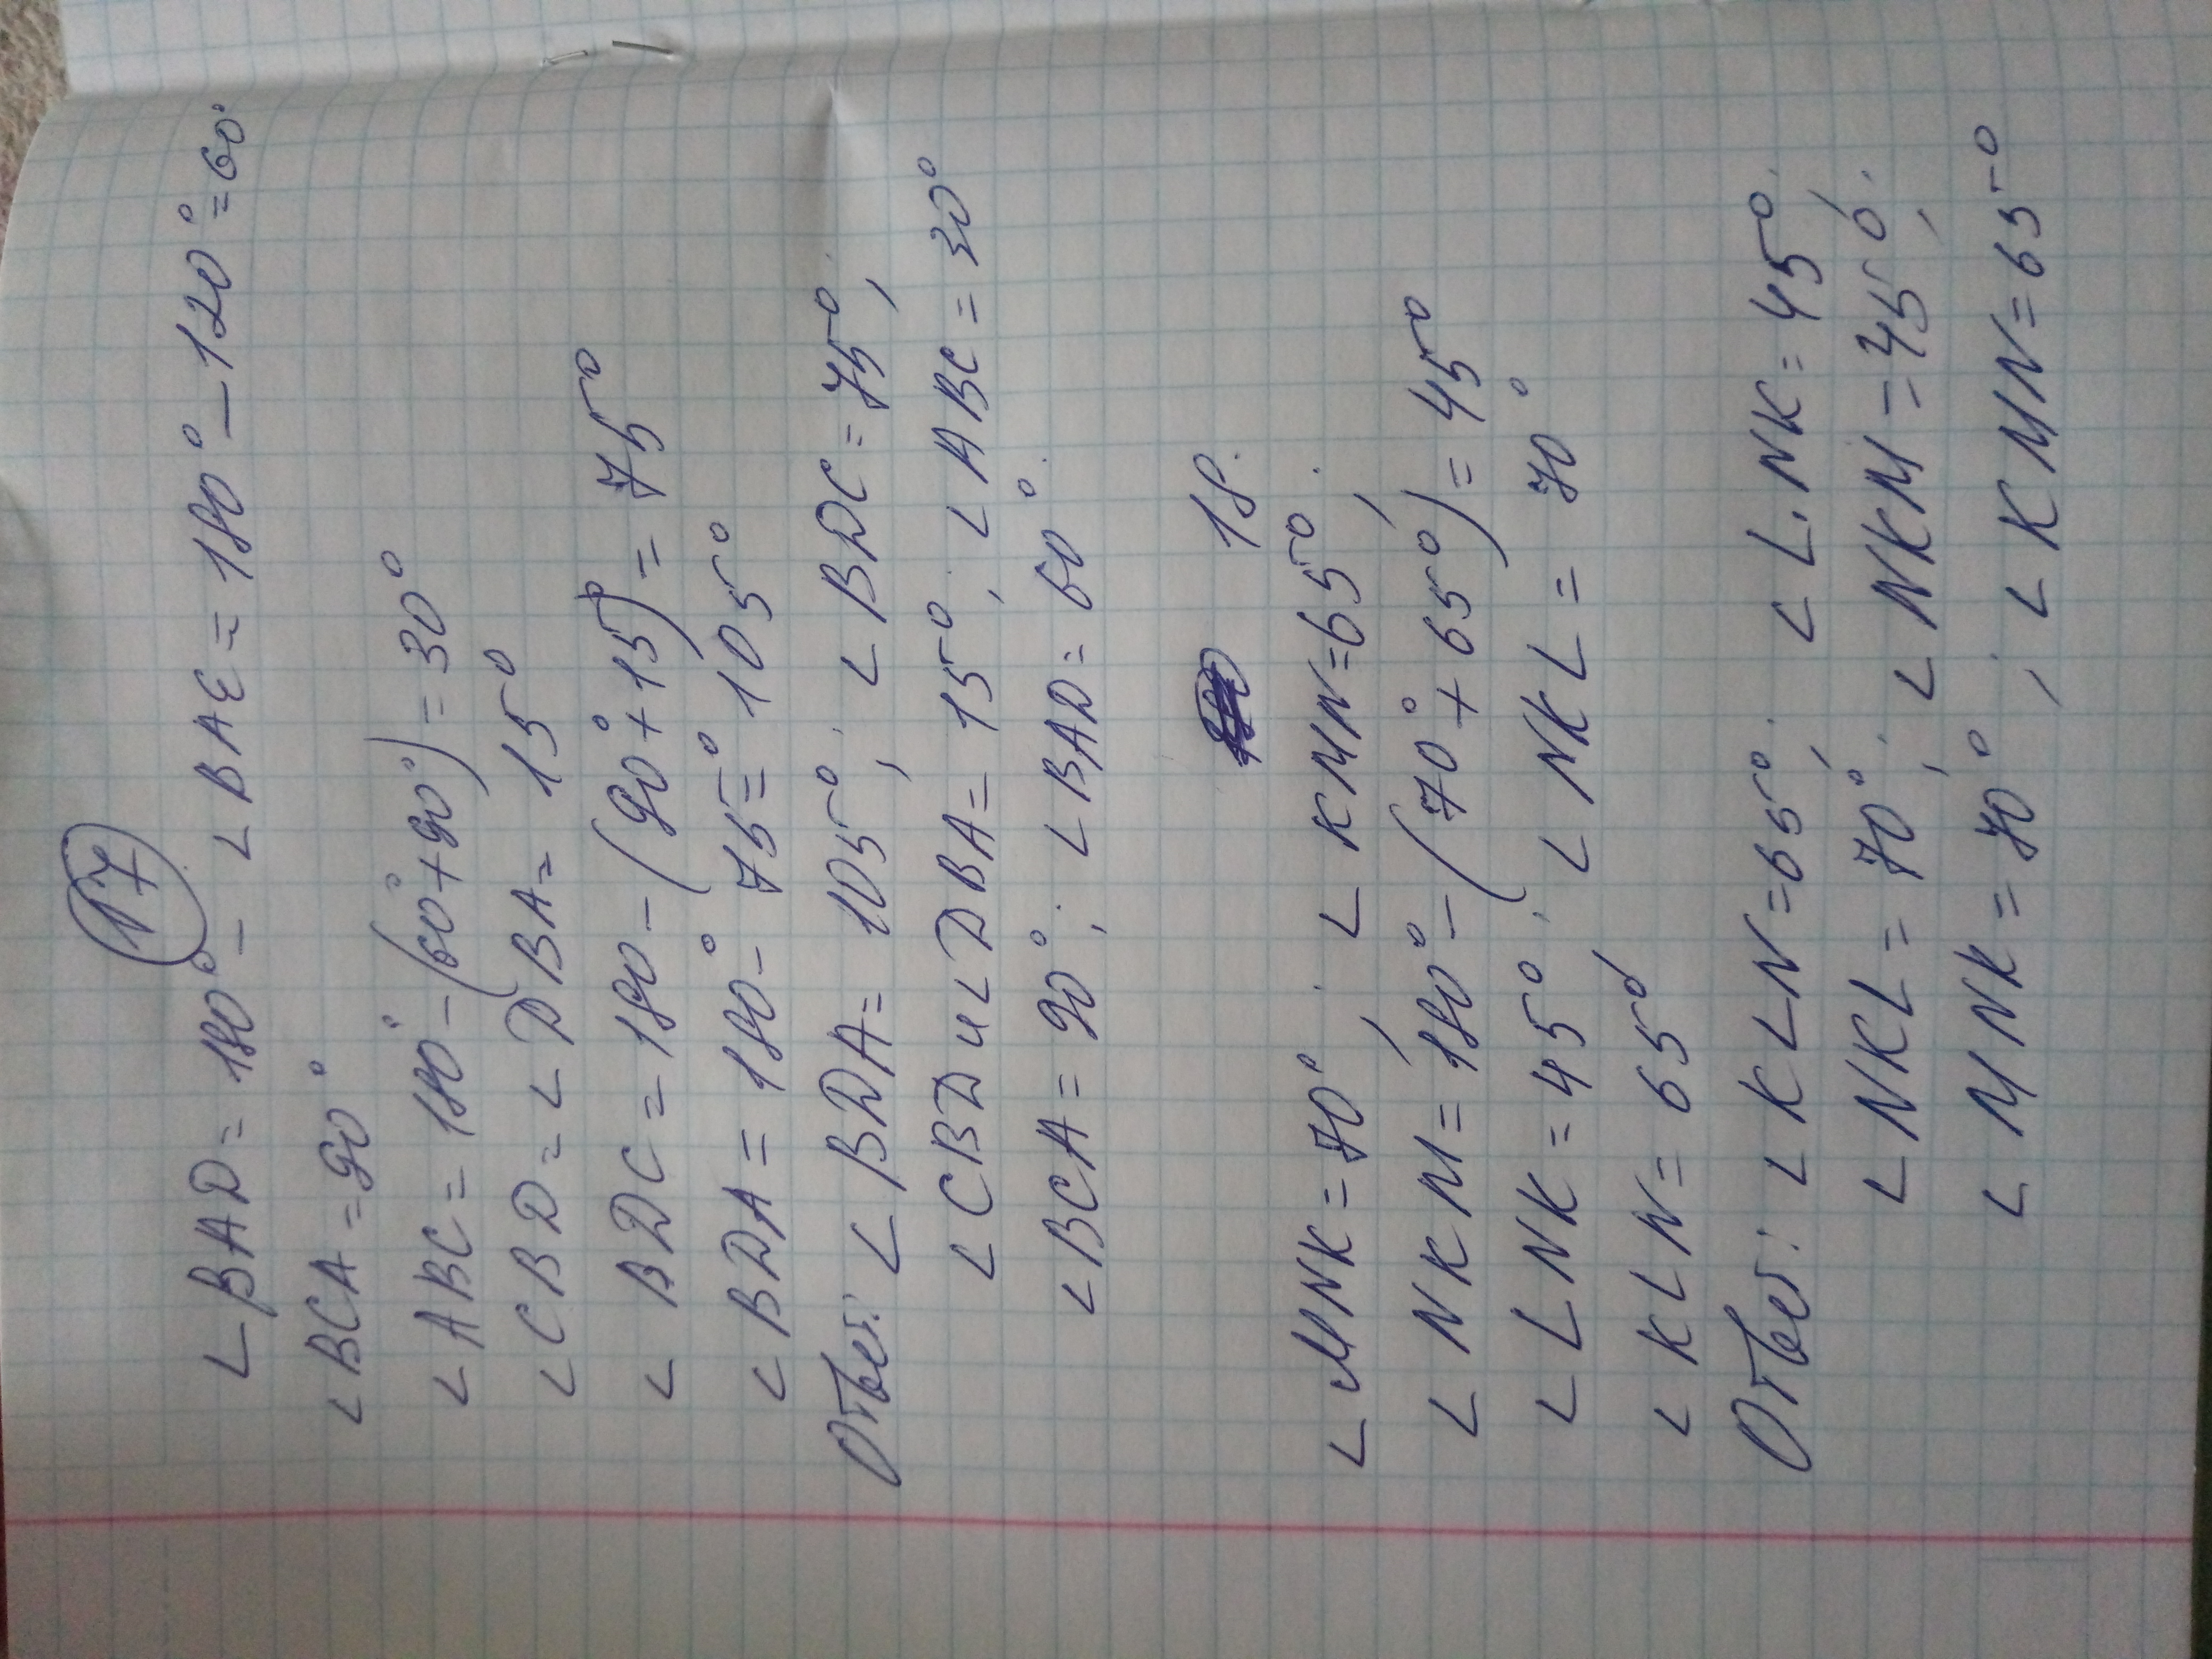 17
∠BAD = 180° - ∠BAE = 180° - 120° = 60°
∠BCA = 90°
∠ABC = 180° - (60° + 90°) = 30°
∠CBD = ∠DBA = 15°
∠BDC = 180 - (90° + 15°) = 75°
∠BDA = 180° - 75° = 105°
Ответ: ∠BDA = 105°; ∠BDC = 75°;
∠CBD и ∠DBA = 15°; ∠ABC = 30°
∠BCA = 90°; ∠BAD = 60°.
18.
∠MNK = 70°; ∠KMN = 65°;
∠NKM = 180° - (70° + 65°) = 45°
∠LNK = 45°; ∠NKL = 70°
∠KLN = 65°
Ответ: ∠KLN = 65°; ∠LNK = 45°;
∠NKL = 70°; ∠NKM = 45°;
∠MNK = 70°; ∠KMN = 65°